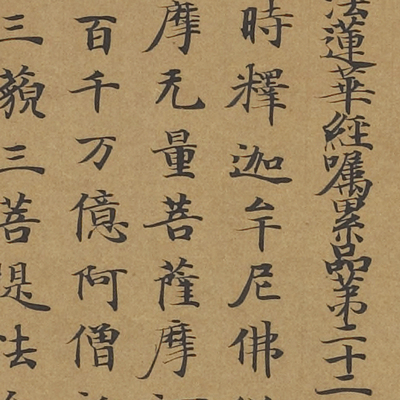 法蓮華經嘱累品苐二十二
時釋迦牟尼佛
摩无量菩薩摩
百千万億阿僧
三藐三菩提法